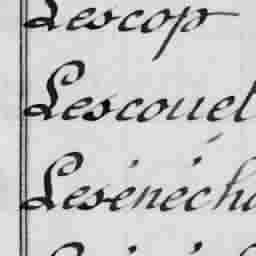 Lescop
Lescouet
Lesénécha